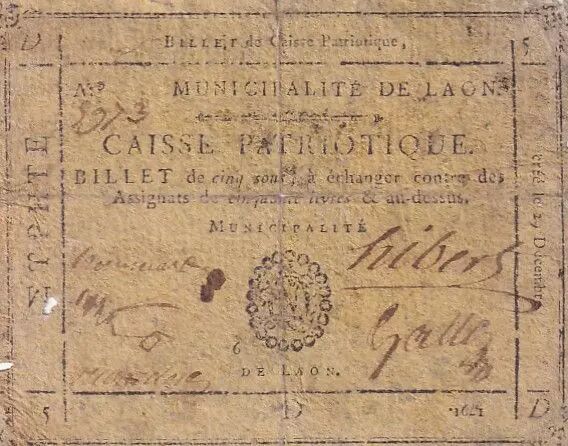 D BILLET de Caisse Patriotique, 5
N.º MUNICIPALITÉ DE LAON
2973
CAISSE PATRIOTIQUE.
BILLET de cinq sous, à échanger contre des
Assignats de cinquante livres & au-dessus.
MUNICIPALITÉ
hibert
Galle
6
DE LAON.
5 D D
créé le 29 Décembre